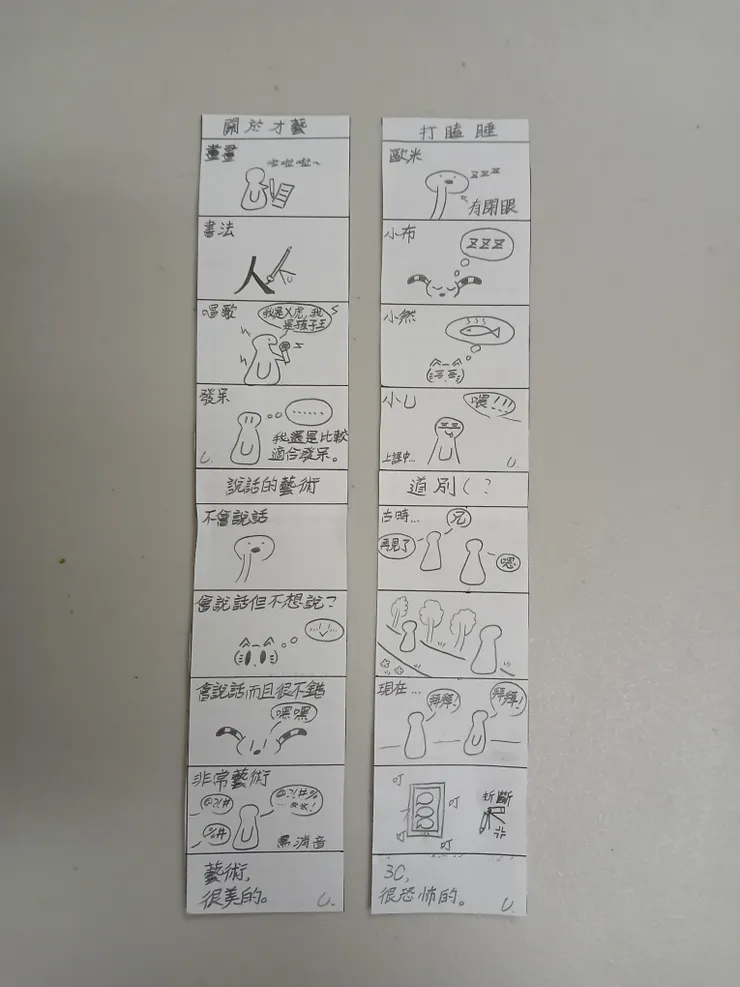 關於才藝
畫畫
啦啦啦~
書法
人
唱歌
我是X虎,我
是孩子王
發呆
......
我還是比較
適合發呆。
U.
說話的藝術
不會說話
會說話但不想說?
會說話而且很不錯
嘿嘿
非常藝術
@?!#
@?!#%
%#
消音
藝術,
很美的。
U.
打瞌睡
歐米
zzz
有開眼
小布
ZZZ
小然
小U
嘿!!!
上課中...
U.
道別(?
古時...
兄
再見了
嗯
現在...
拜拜!
拜拜!
叮
叮
叮
叮
折斷
3C,
很恐怖的。
U.